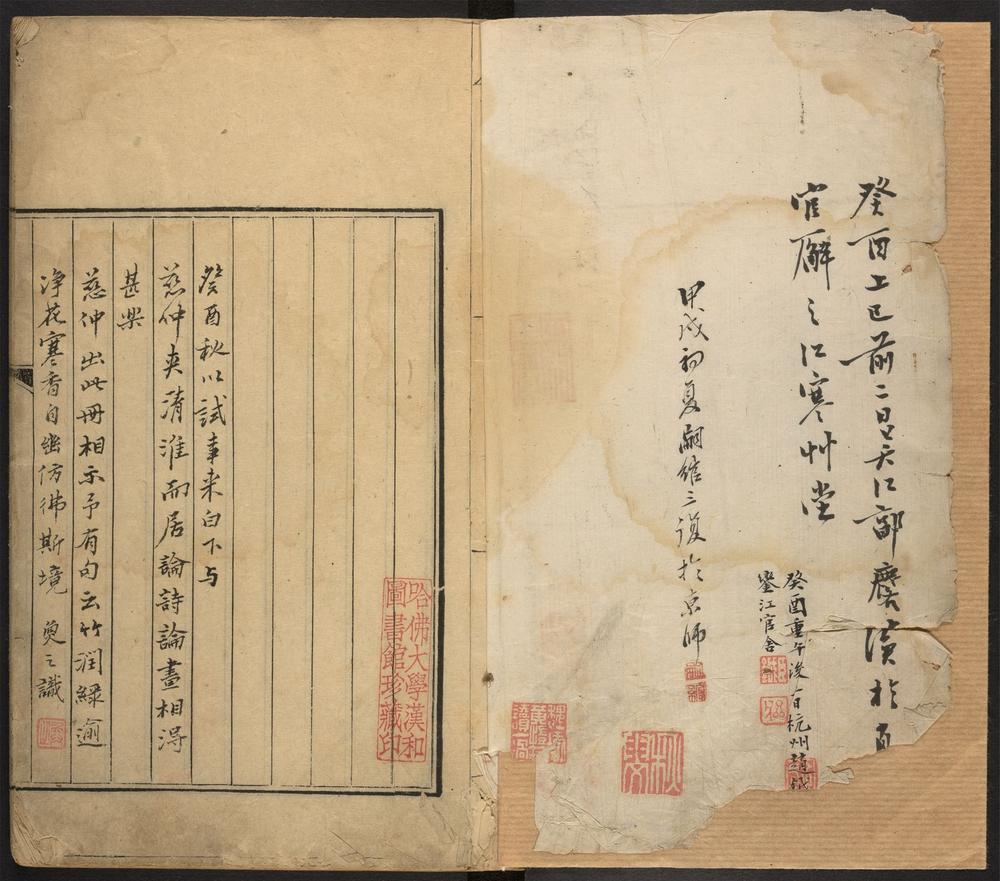 癸酉上巳前二日吳江郭麐讀於
官廨之江寒艸堂
癸酉重午後 日杭州趙鉞
鑒江官舍
甲戌初夏嗣館三復於京師
哈佛大學漢和
圖書館珍藏印
癸酉秋以試事来白下与
慈仲夾清淮而居論詩論畫相得
甚樂
慈仲出此冊相示予有句云竹潤綠逾
浄花寒香自幽仿彿斯境 奐之識